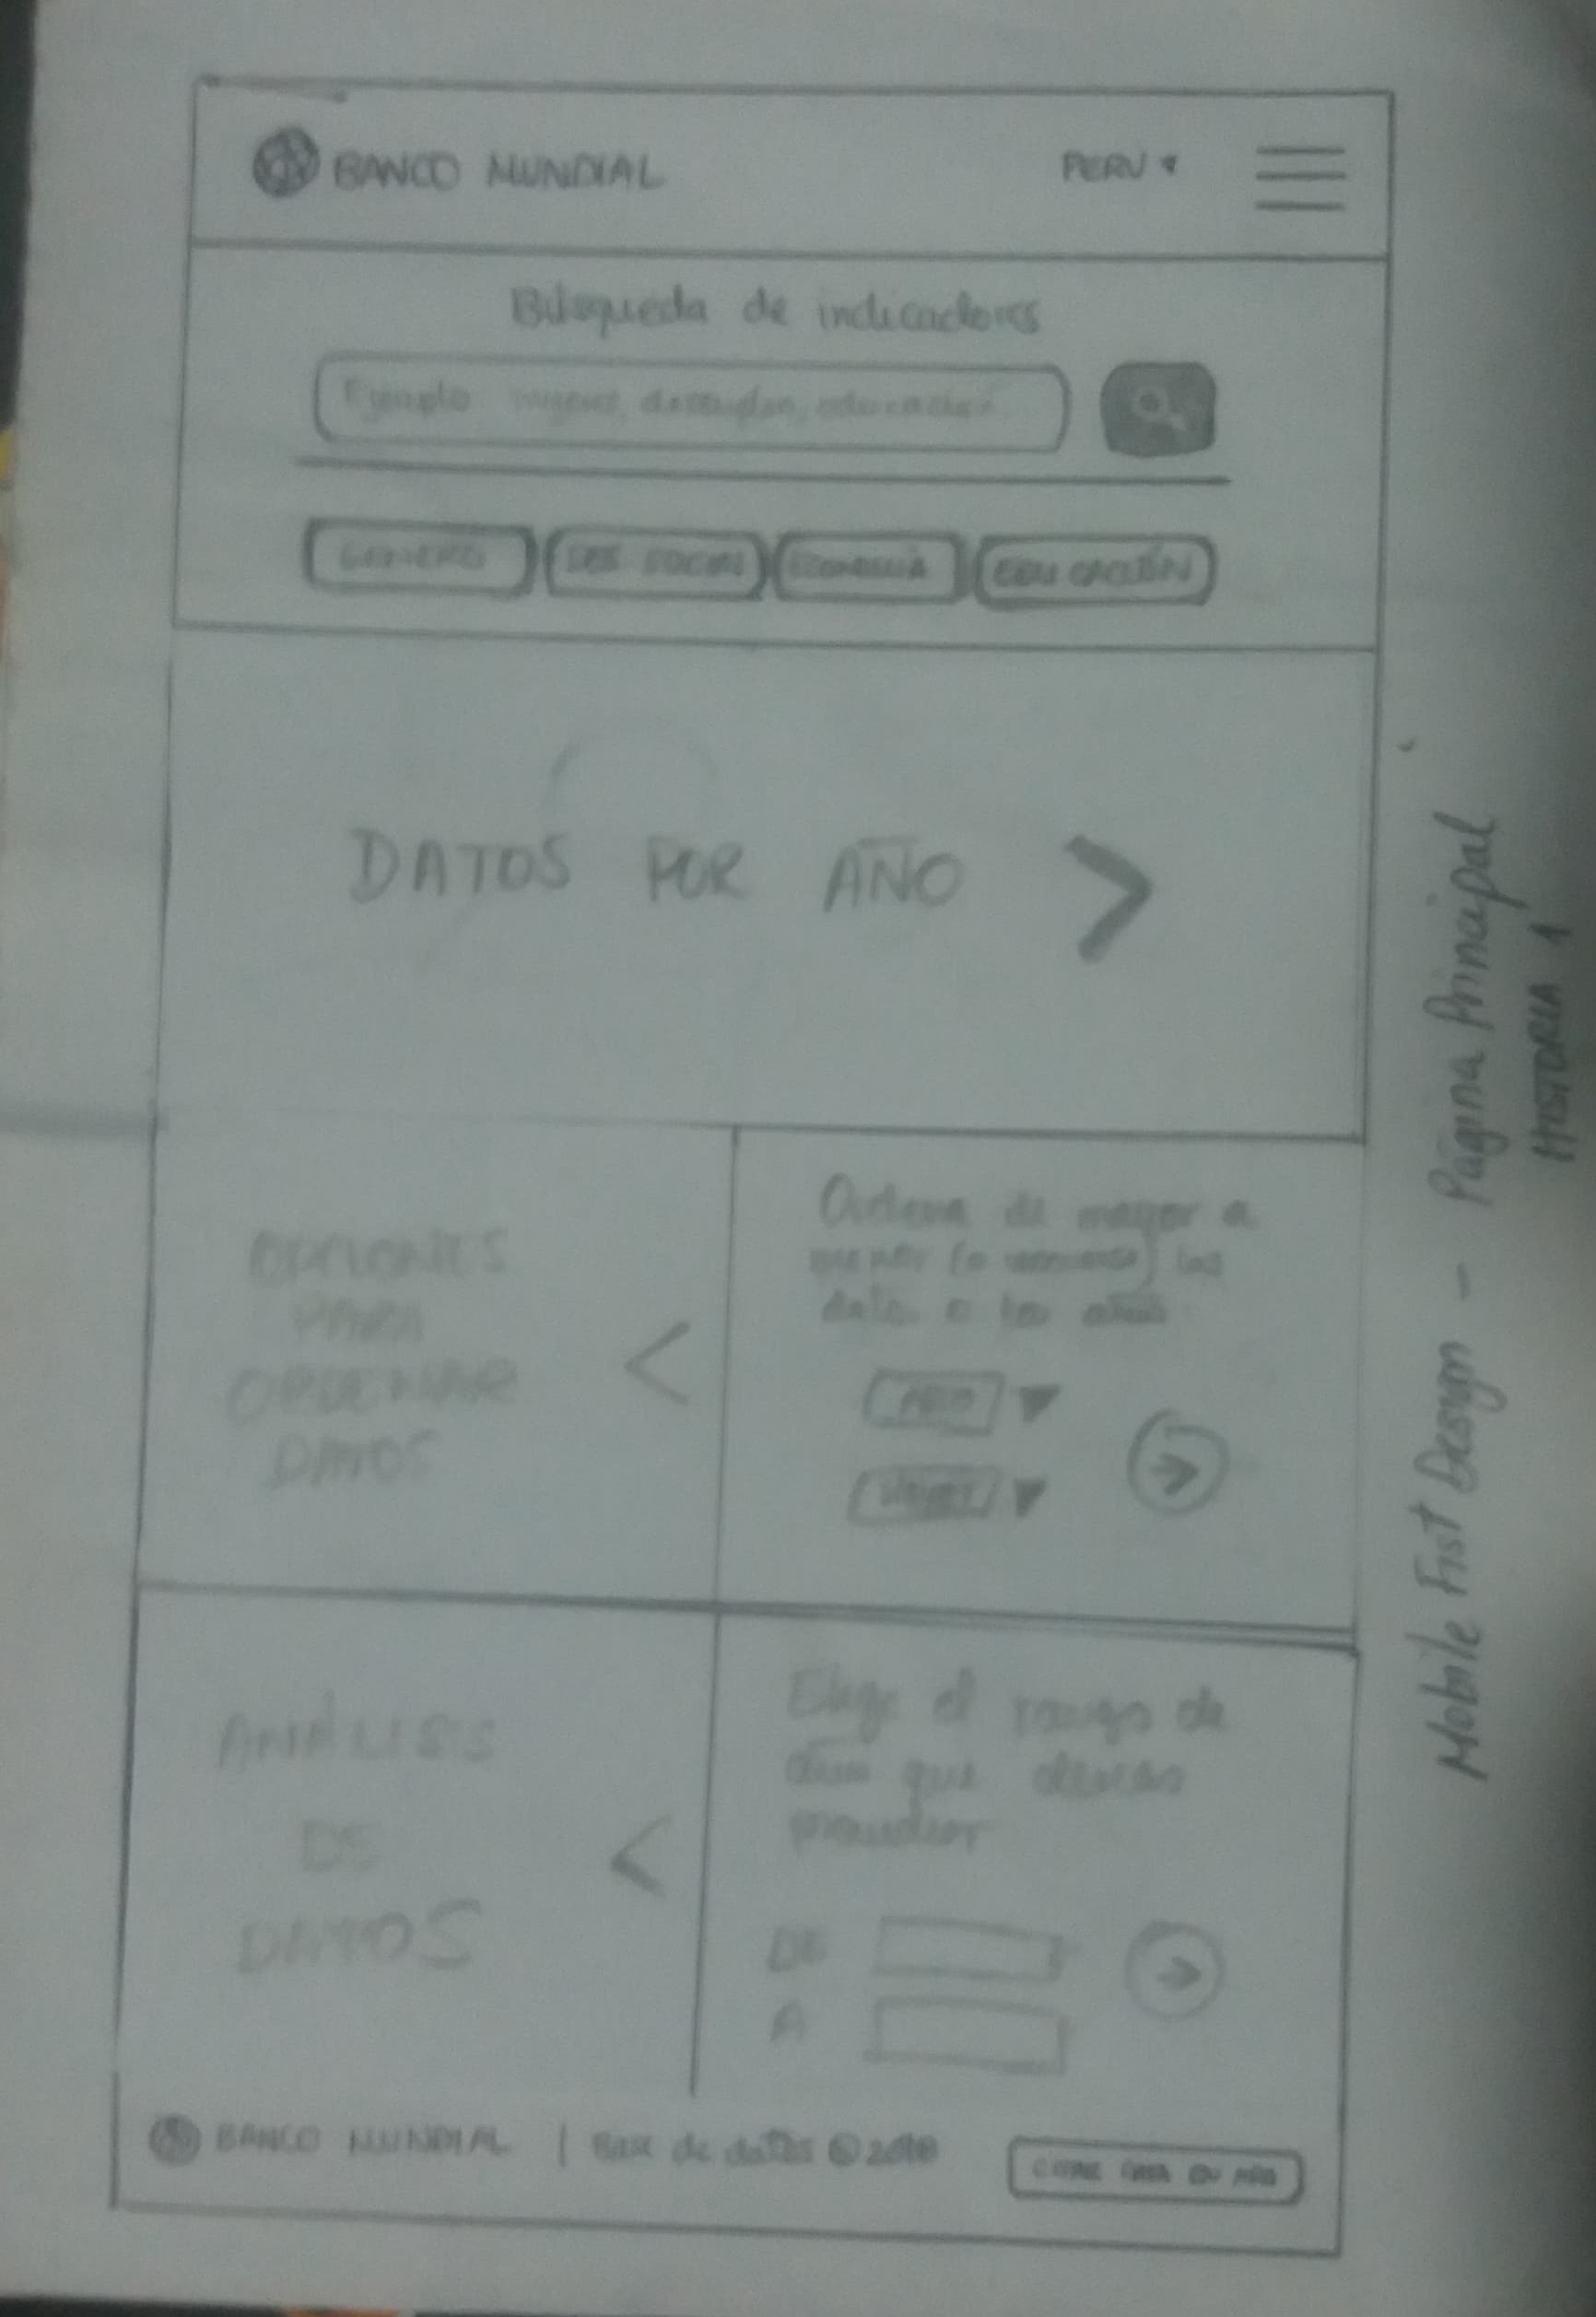 BANCO MUNDIAL
PERU
Búsqueda de indicadores
Ejemplo mujeres, desempleo, educación
GENERO
DES SOCIAL
ECONOMÍA
EDUCACIÓN
DATOS POR AÑO
OPCIONES
PARA
ORDENAR
DATOS
Ordena de mayor a
menor (o viceversa) los
datos o los años
AÑO
ANÁLISIS
DE
DATOS
Elige el rango de
años que deseas
DE
A
BANCO MUNDIAL | Base de datos ©
Mobile Fist Design - Página Principal
HISTORIA 1